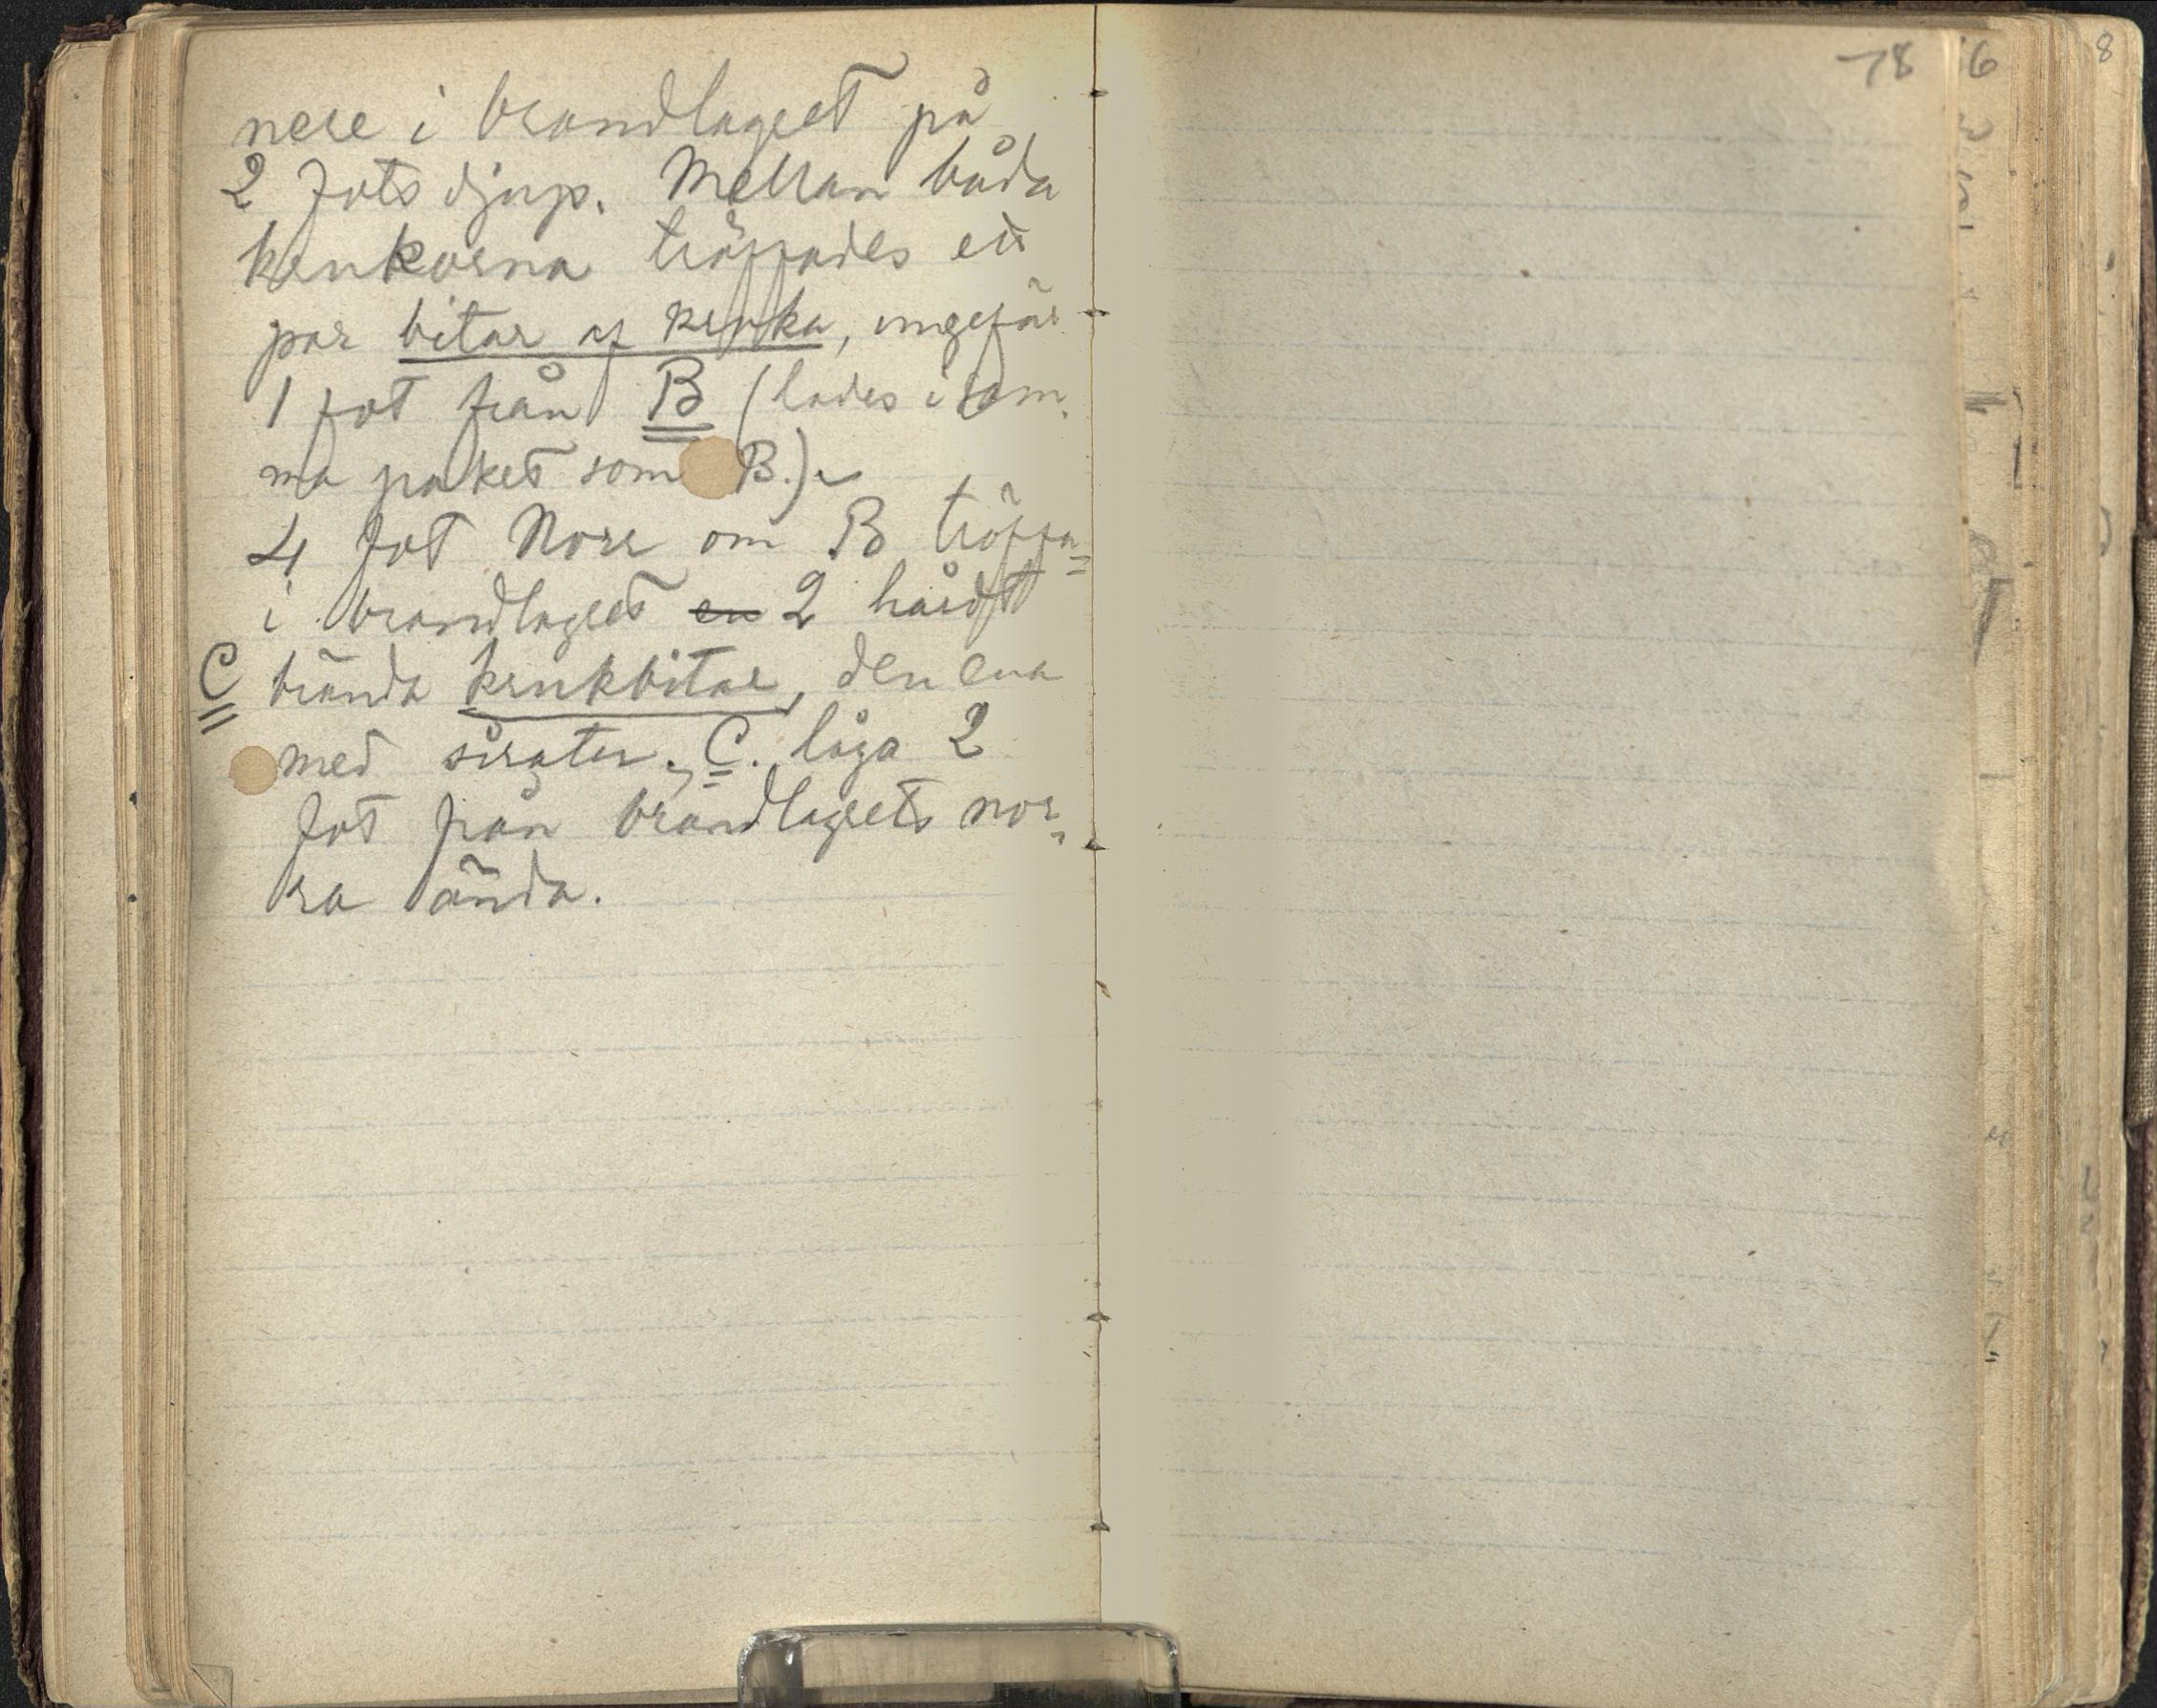 nere i brandlagret på
2 fots djup. Mellan båda
krukorna träffades ett
par bitar af kruka, ungefär
1 fot från B (lades i sam-
ma paket som B.)
4 fot Norr om B träffa=
i brandlagret en 2 hårdt
C brända krukbitar, den ena
med sirater. C. låga 2
fot från brandlagrets nor-
ra ända.
78
6
8